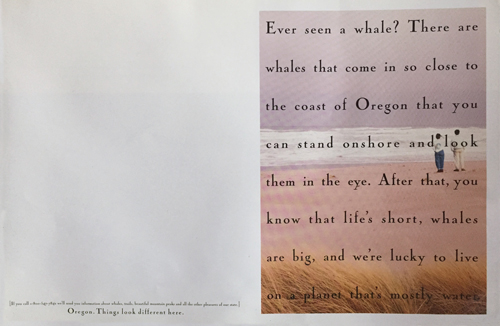 Ever seen a whale? There are
whales that come in so close to
the coast of Oregon that you
can stand onshore and look
them in the eye. After that, you
know that life's short, whales
are big, and we're lucky to live
on a planet that's mostly water.
we'll send you information about whales, trails, beautiful mountain peaks and all the other pleasures of our state.]
Oregon. Things look different here.